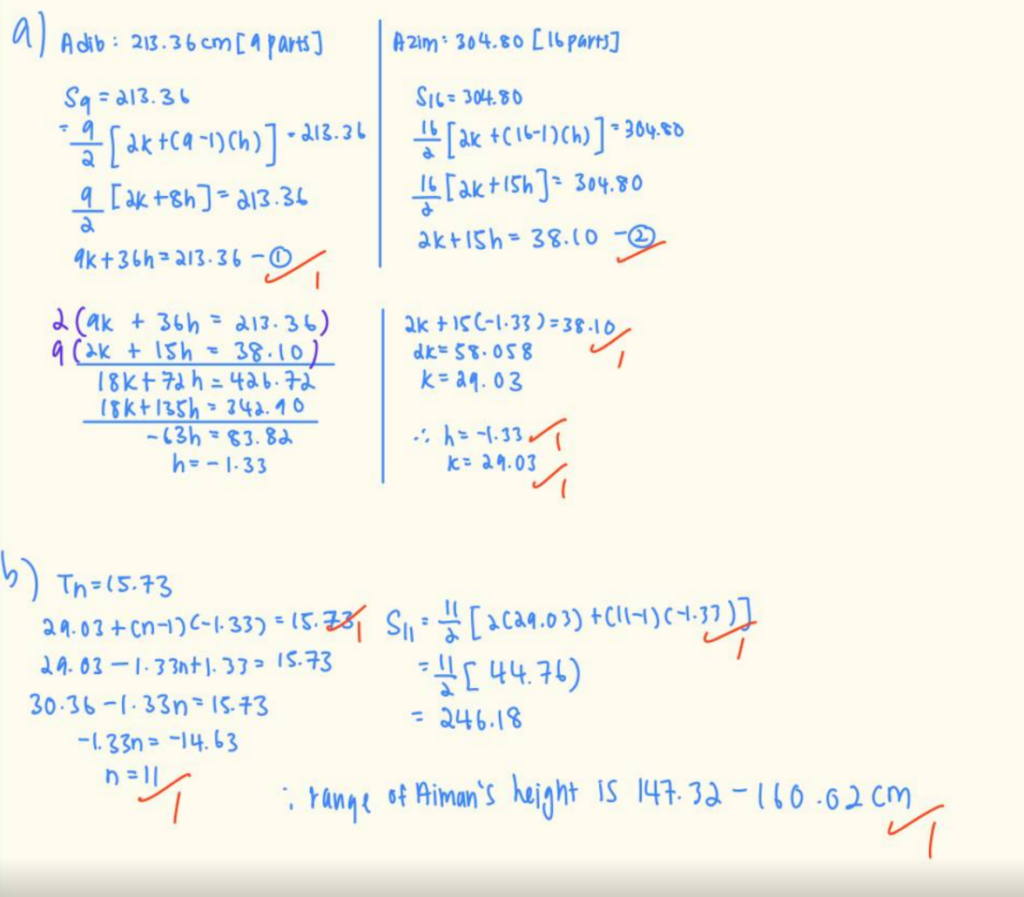 a) Adib : 213.36 cm [9 parts]
S9 = 213.36
= 9/2 [2k+(9-1)(h)] = 213.36
9/2 [2k+8h] = 213.36
9k+36h = 213.36 - ①
1
Azim : 304.80 [16 parts]
S16 = 304.80
16/2 [2k+(16-1)(h)] = 304.80
16/2 [2k+15h] = 304.80
2k+15h = 38.10 - ②
1
2(9k + 36h = 213.36)
9(2k + 15h = 38.10)
18k+72h = 426.72
18k+135h = 342.90
-63h = 83.82
h = -1.33
2k+15(-1.33) = 38.10
1
2k = 58.058
k = 29.03
∴ h = -1.33
1
k = 29.03
1
b) Tn = 15.73
29.03+(n-1)(-1.33) = 15.73
1
29.03-1.33n+1.33 = 15.73
30.36-1.33n = 15.73
-1.33n = -14.63
n = 11
1
S11 = 11/2 [2(29.03)+(11-1)(-1.33)]
1
= 11/2 [44.76)
= 246.18
∴ range of Aiman's height is 147.32 - 160.02 cm
1